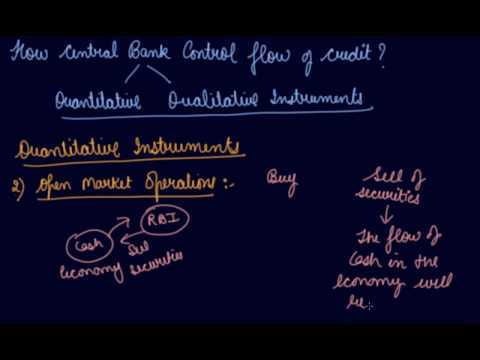 How Central Bank Control flow of credit?
Quantitative Qualitative Instruments
Quantitative Instruments
2) Open Market Operations:-
Buy
Sell of
securities
RBI
Cash
Sell
economy securities
The flow of
cash in the
economy will
re